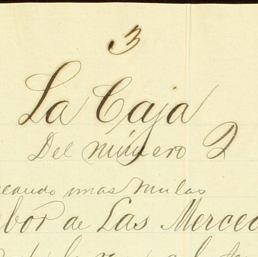 3
La Caja
Del número 2
unas mulas
bor de Las Merced